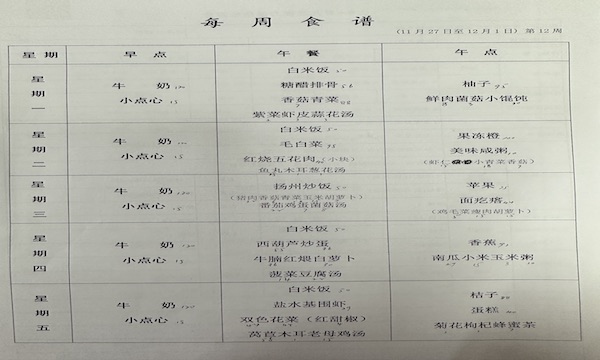 每周食谱
(11月27日至12月1日) 第12周
星期 早点 午餐 午点
星期一
牛奶
小点心 15
白米饭 50
糖醋排骨
香菇青菜
紫菜虾皮蒜花汤
柚子 75
鲜肉菌菇小馄饨
星期二
牛奶
小点心 15
白米饭 50
毛白菜 75
红烧五花肉 (小块)
鱼丸木耳葱花汤
果冻橙
美味咸粥
(虾仁 小青菜香菇)
星期三
牛奶
小点心 15
扬州炒饭 50
(猪肉香菇青菜玉米胡萝卜)
番茄鸡蛋菌菇汤
苹果
面疙瘩
(鸡毛菜瘦肉胡萝卜)
星期四
牛奶
小点心 15
白米饭 50
西葫芦炒蛋
牛腩红煨白萝卜
菠菜豆腐汤
香蕉
南瓜小米玉米粥
星期五
牛奶
小点心 15
白米饭 50
盐水基围虾
双色花菜 (红甜椒)
莴苣木耳老母鸡汤
桔子
蛋糕
菊花枸杞蜂蜜茶